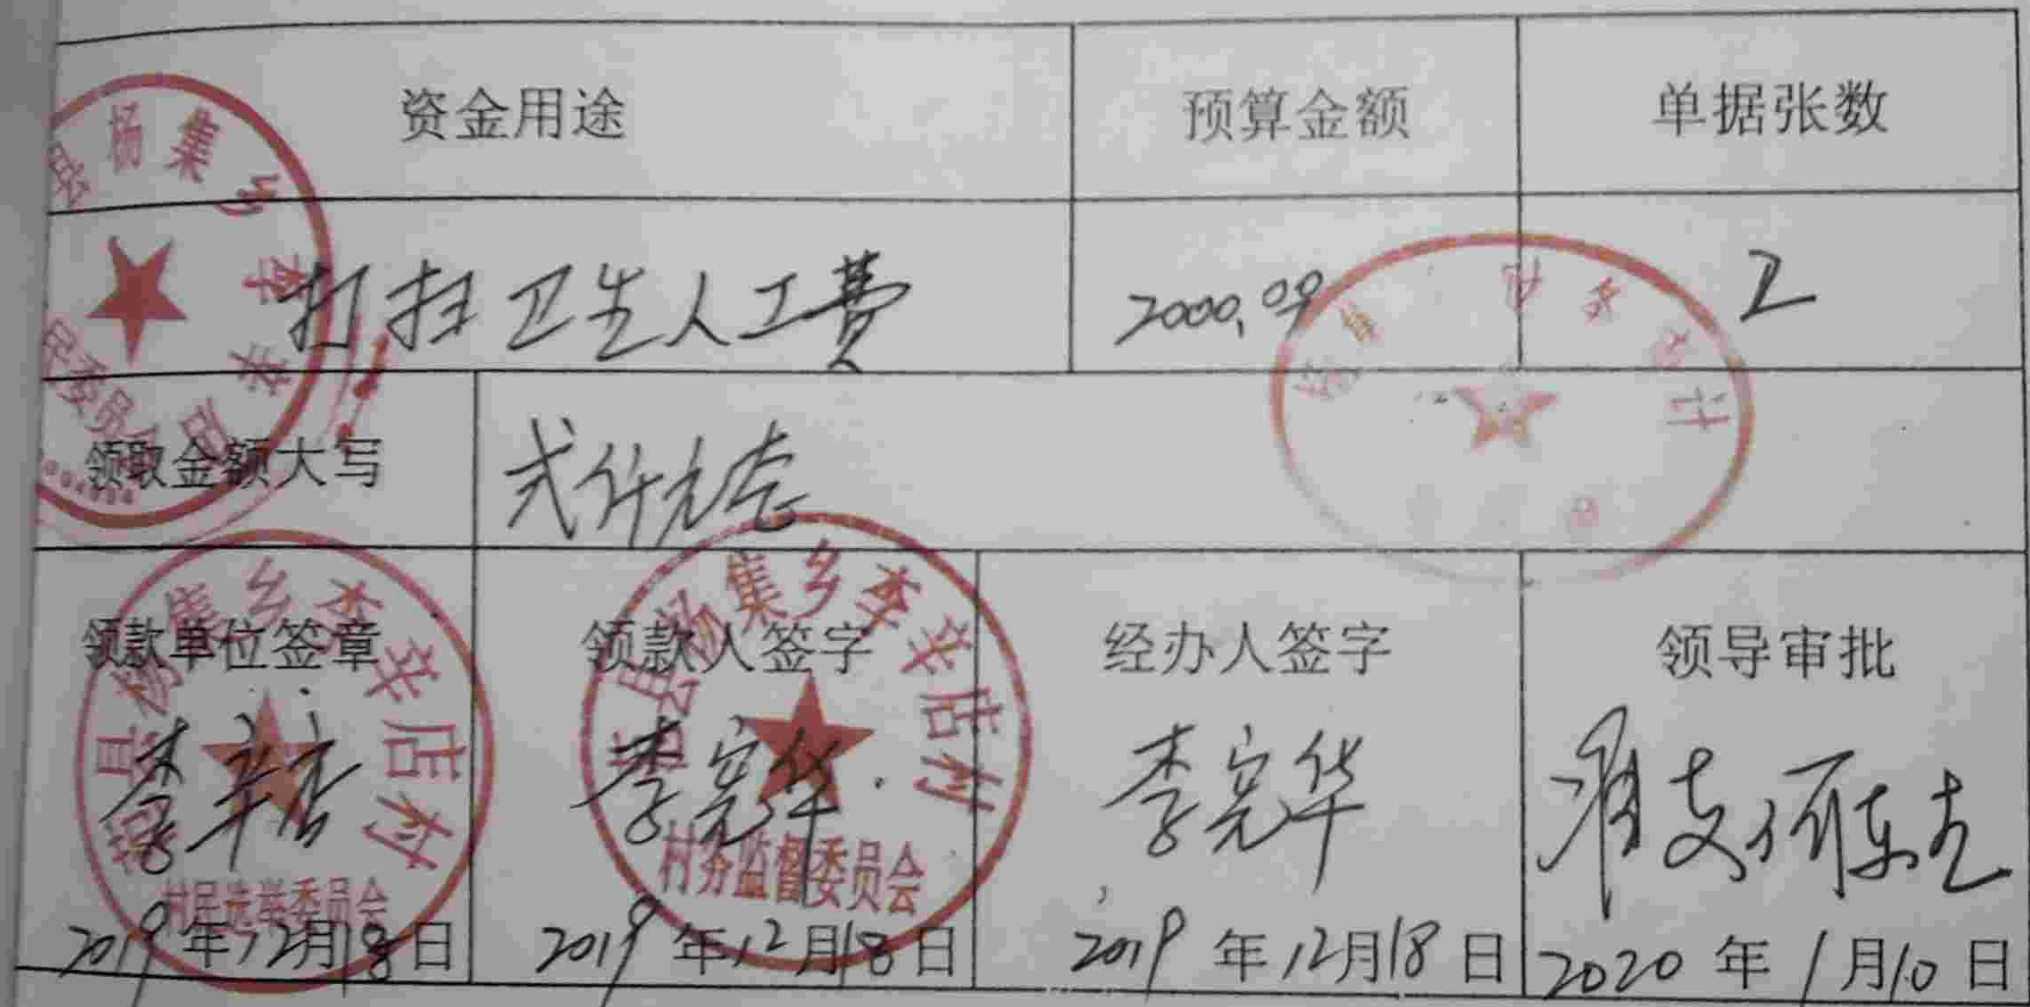 资金用途 预算金额 单据张数
打扫卫生人工费 2000.00 2
领取金额大写 弍仟元壱
领款单位签章 领款人签字 经办人签字 领导审批
李辛店 李完华 李完华 准支
2019年12月18日 2019年12月18日 2019年12月18日 2020年1月10日
杨集乡李辛店
民委员会
县杨集乡李辛店村
村民选举委员会
县杨集乡李辛店村
村务监督委员会